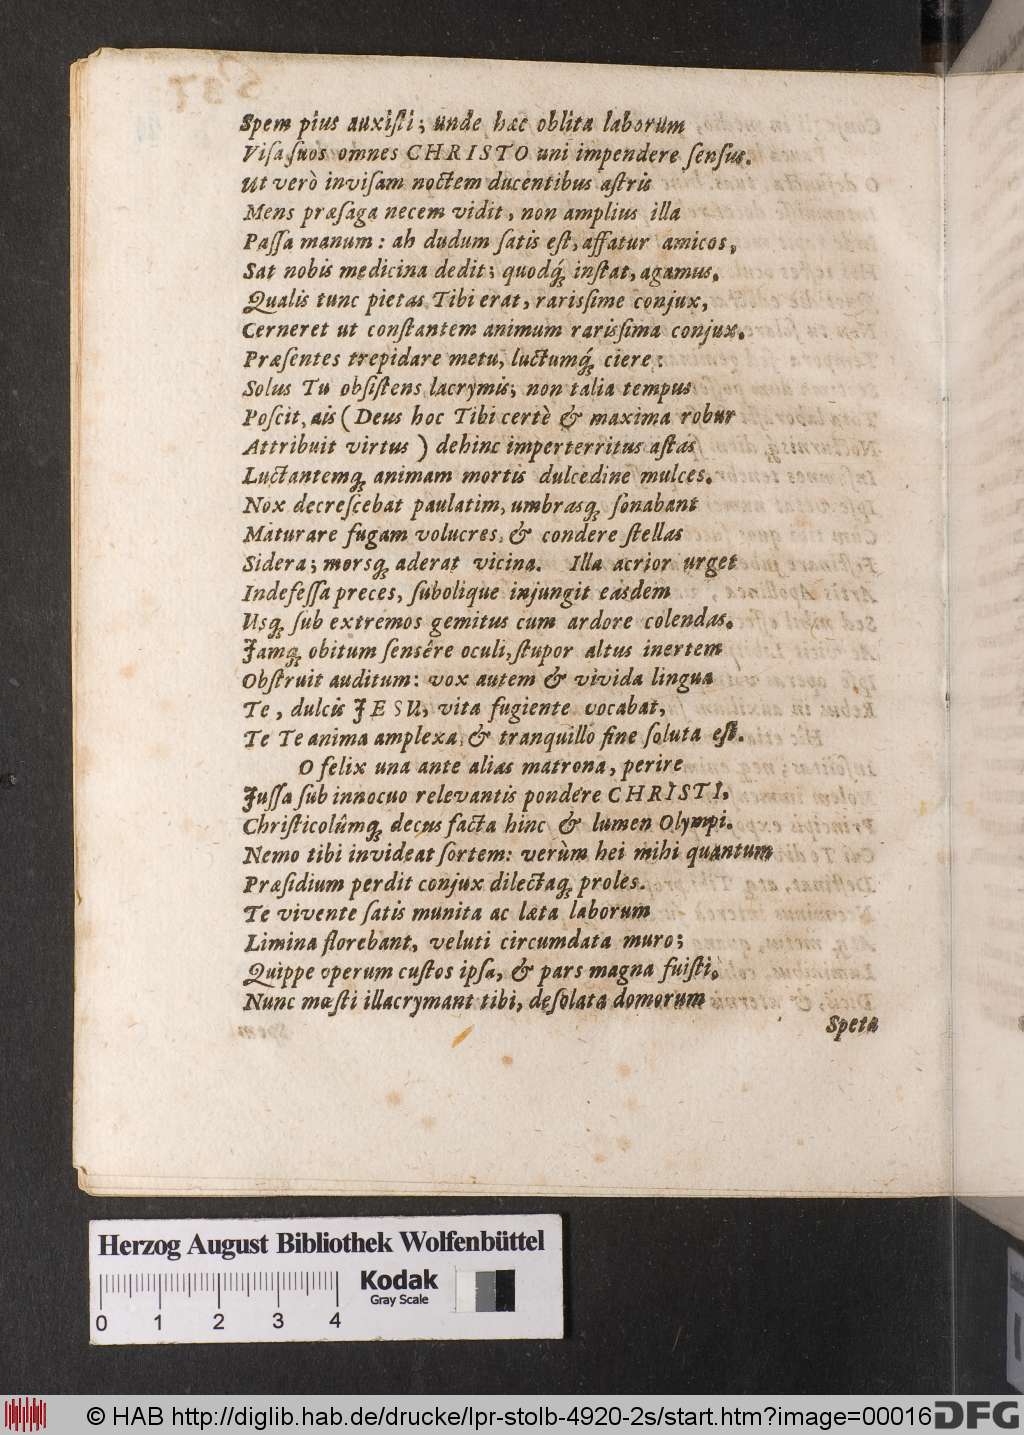 Spem pius auxiſti; unde hæc oblita laborum
Viſa ſuos omnes CHRISTO uni impendere ſenſus.
Ut verò inviſam noctem ducentibus aſtris
Mens præſaga necem vidit, non amplius illa
Paſſa manum: ah dudum ſatis eſt, affatur amicos,
Sat nobis medicina dedit; quodq́; inſtat, agamus.
Qualis tunc pietas Tibi erat, rariſſime conjux,
Cerneret ut conſtantem animum rariſſima conjux.
Præſentes trepidare metu, luctumq́; ciere:
Solus Tu obſiſtens lacrymis; non talia tempus
Poſcit, ais (Deus hoc Tibi certè & maxima robur
Attribuit virtus) dehinc imperterritus aſtas
Luctantemq; animam mortis dulcedine mulces.
Nox decreſcebat paulatim, umbrasq; ſonabant
Maturare fugam volucres, & condere ſtellas
Sidera; morsq; aderat vicina. Illa acrior urget
Indefeſſa preces, ſubolique injungit easdem
Usq; ſub extremos gemitus cum ardore colendas.
Jamq; obitum ſensêre oculi, ſtupor altus inertem
Obſtruit auditum: vox autem & vivida lingua
Te, dulcis JESU, vita fugiente vocabat,
Te Te anima amplexa, & tranquillo fine ſoluta eſt.
O felix una ante alias matrona, perire
Juſſa ſub innocuo relevantis pondere CHRISTI,
Chriſticolûmq; decus facta hinc & lumen Olympi.
Nemo tibi invideat ſortem: verùm hei mihi quantum
Præſidium perdit conjux dilectaq; proles.
Te vivente ſatis munita ac læta laborum
Limina florebant, veluti circumdata muro;
Quippe operum cuſtos ipſa, & pars magna fuiſti.
Nunc mœſti illacrymant tibi, deſolata domorum
Speta
Herzog August Bibliothek Wolfenbüttel
Kodak
Gray Scale
0 1 2 3 4
© HAB http://diglib.hab.de/drucke/lpr-stolb-4920-2s/start.htm?image=00016
DFG